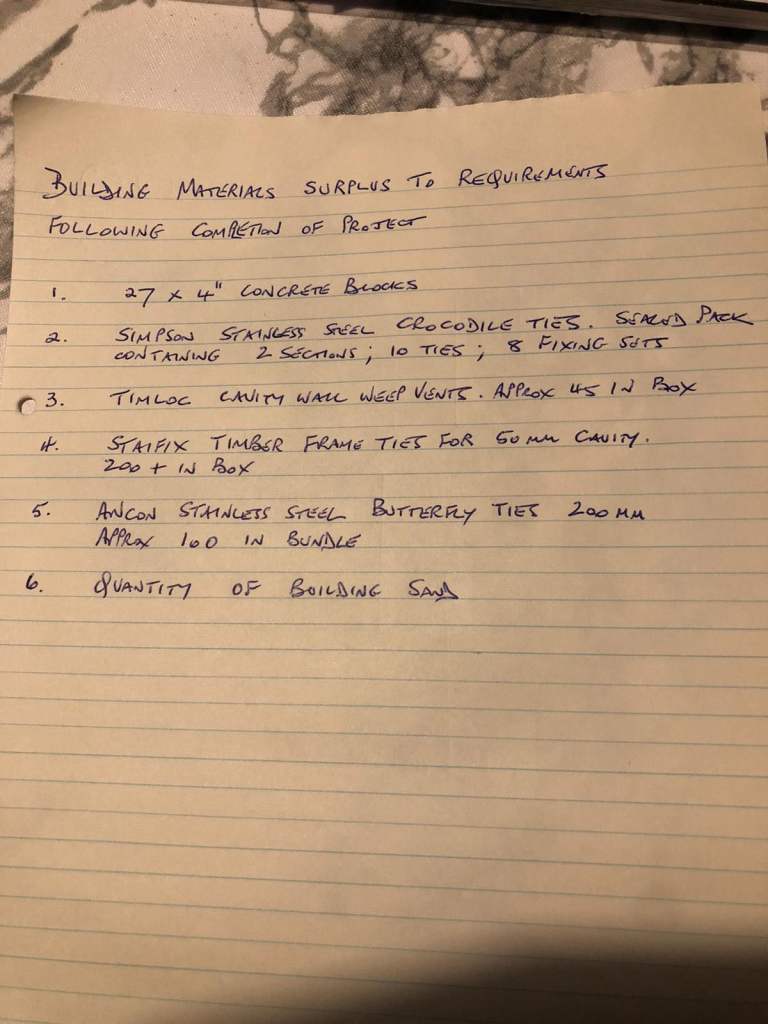 BUILDING MATERIALS SURPLUS TO REQUIREMENTS
FOLLOWING COMPLETION OF PROJECT
1. 27 x 4" CONCRETE BLOCKS
2. SIMPSON STAINLESS STEEL CROCODILE TIES. SEALED PACK
CONTAINING 2 SECTIONS; 10 TIES; 8 FIXING SETS
3. TIMLOC CAVITY WALL WEEP VENTS. APPROX 45 IN BOX
4. STAIFIX TIMBER FRAME TIES FOR 50 MM CAVITY.
200 + IN BOX
5. ANCON STAINLESS STEEL BUTTERFLY TIES 200 MM
APPROX 100 IN BUNDLE
6. QUANTITY OF BUILDING SAND